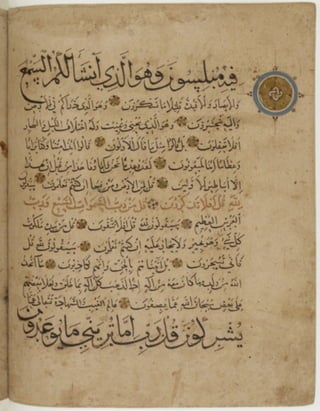 فيه مبلسون وهو الذي أنشأ لكم السمع
والأبصار والأفئدة قليلا ما تشكرون وهو الذي ذرأكم في الأرض
وإليه تحشرون وهو الذي يحيي ويميت وله اختلاف الليل والنهار
أفلا تعقلون بل قالوا مثل ما قال الأولون قالوا أئذا متنا وكنا ترابا
وعظاما أئنا لمبعوثون لقد وعدنا نحن وآباؤنا هذا من قبل إن هذا
إلا أساطير الأولين قل لمن الأرض ومن فيها إن كنتم تعلمون سيقولون
لله قل أفلا تذكرون قل من رب السموات السبع ورب
العرش العظيم سيقولون لله قل أفلا تتقون قل من بيده ملكوت
كل شيء وهو يجير ولا يجار عليه إن كنتم تعلمون سيقولون لله قل
فأنى تسحرون بل أتيناهم بالحق وإنهم لكاذبون ما اتخذ
الله من ولد وما كان معه من إله إذا لذهب كل إله بما خلق ولعلا بعضهم
على بعض سبحان الله عما يصفون عالم الغيب والشهادة فتعالى عما
يشركون قل رب إما تريني ما يوعدون